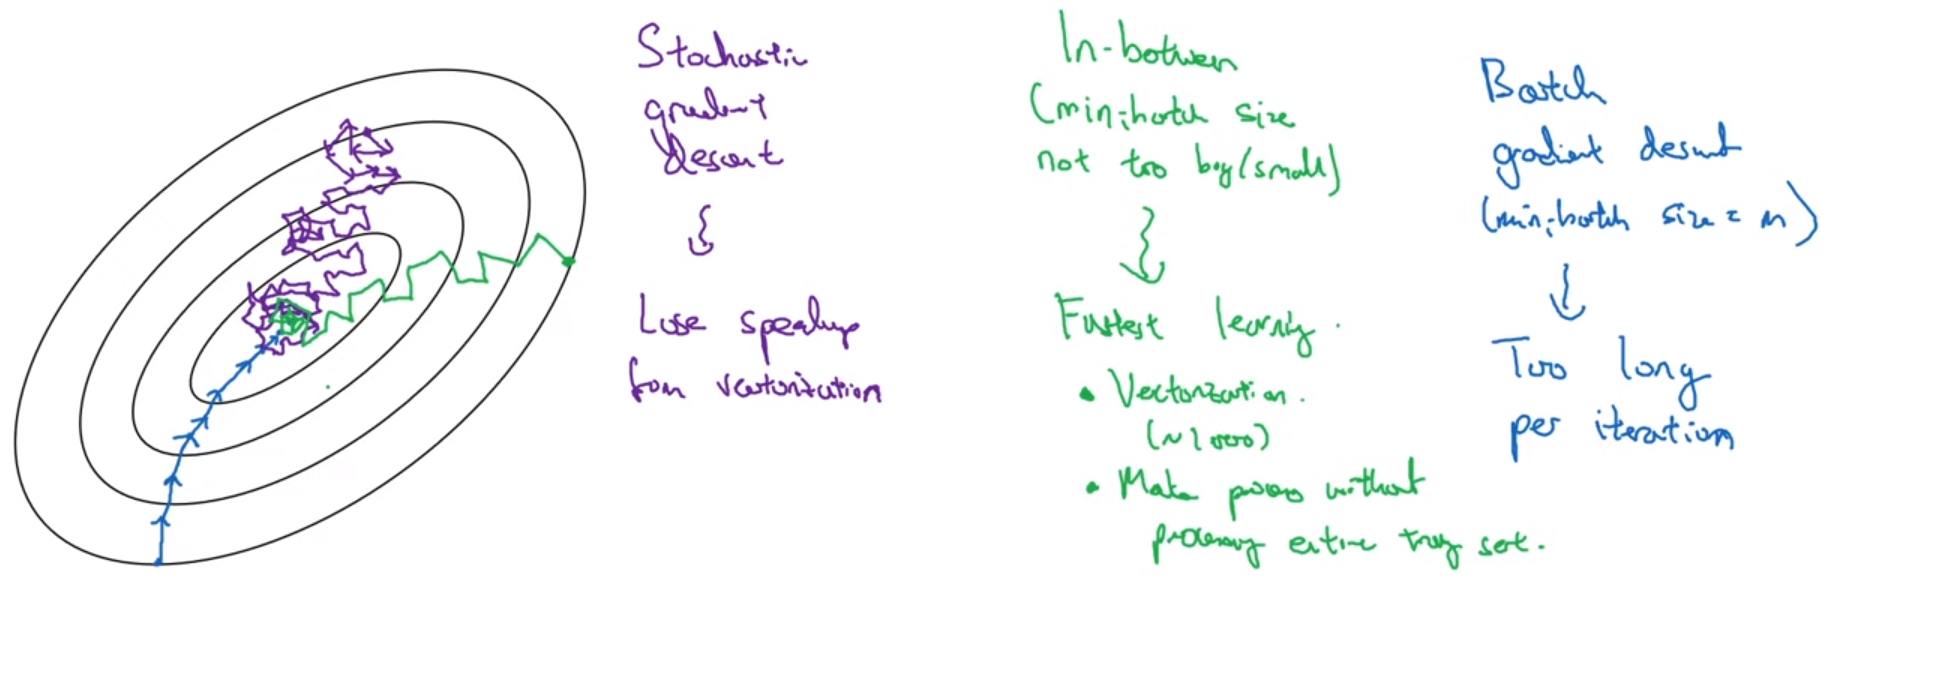 Stochastic
gradient
descent
Lose speedup
from vectorization
In-between
(mini-batch size
not too big/small)
Fastest learning.
• Vectorization.
(~1000)
• Make progress without
processing entire training set.
Batch
gradient descent
(mini-batch size = m)
Too long
per iteration